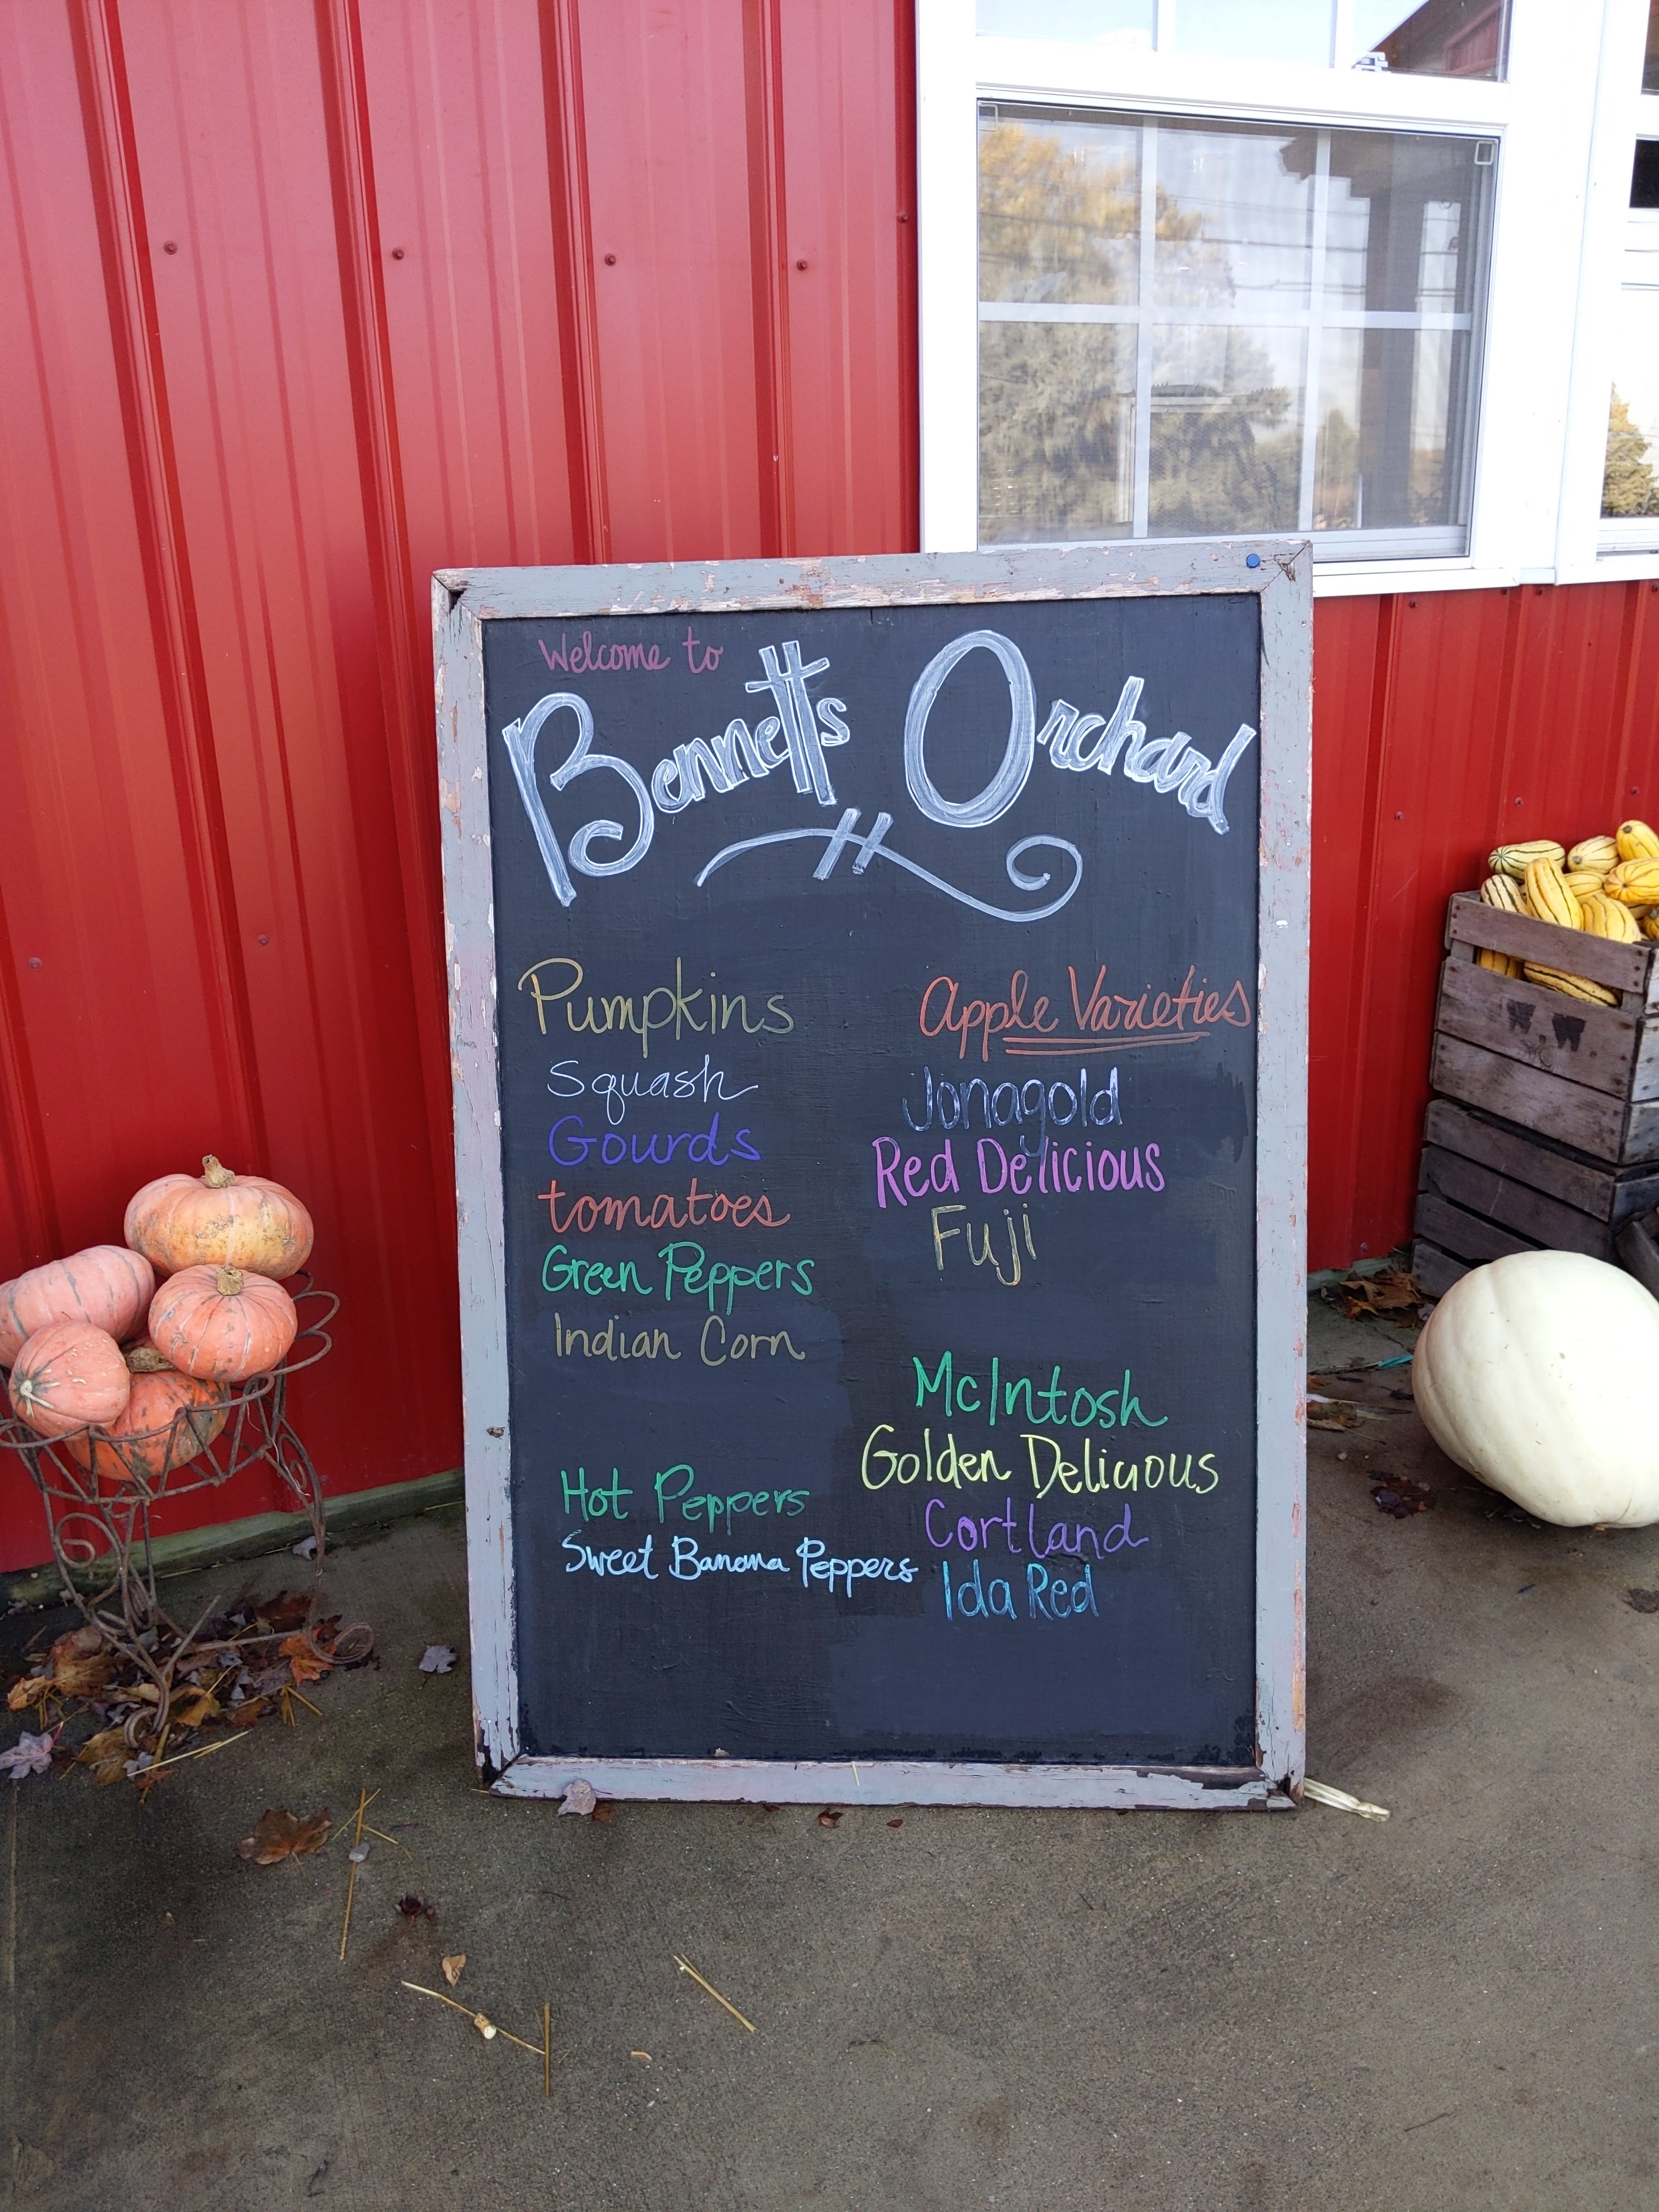 Welcome to
Bennetts Orchard
Pumpkins
Squash
Gourds
tomatoes
Green Peppers
Indian Corn
Hot Peppers
Sweet Banana Peppers
Apple Varieties
Jonagold
Red Delicious
Fuji
McIntosh
Golden Delicious
Cortland
Ida Red
W.W